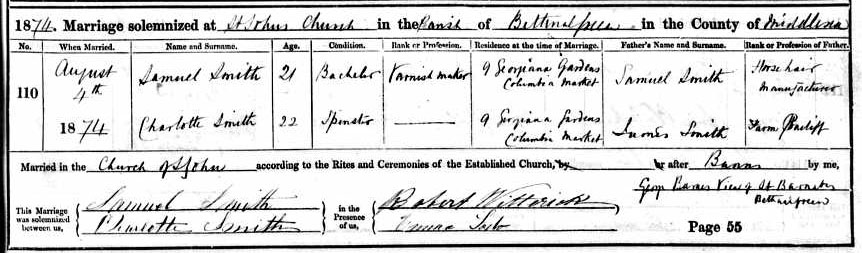 1874. Marriage solemnized at St Johns Church in the Parish of Bethnal Green in the County of Middlesex
No. When Married. Name and Surname. Age. Condition. Rank or Profession. Residence at the time of Marriage. Father's Name and Surname. Rank or Profession of Father.
110 August 4th 1874 Samuel Smith 21 Bachelor Varnish maker 9 Georgiana Gardens Columbia Market Samuel Smith Horsehair manufacturer
Charlotte Smith 22 Spinster 9 Georgiana Gardens Columbia Market Smith Farm Bailiff
Married in the Church of St John according to the Rites and Ceremonies of the Established Church, by or after Banns by me,
Geo Barnes Vicar of St Barnabas
Bethnal Green
This Marriage was solemnized between us, Samuel Smith in the Presence of us, Robert
Charlotte Smith
Page 55